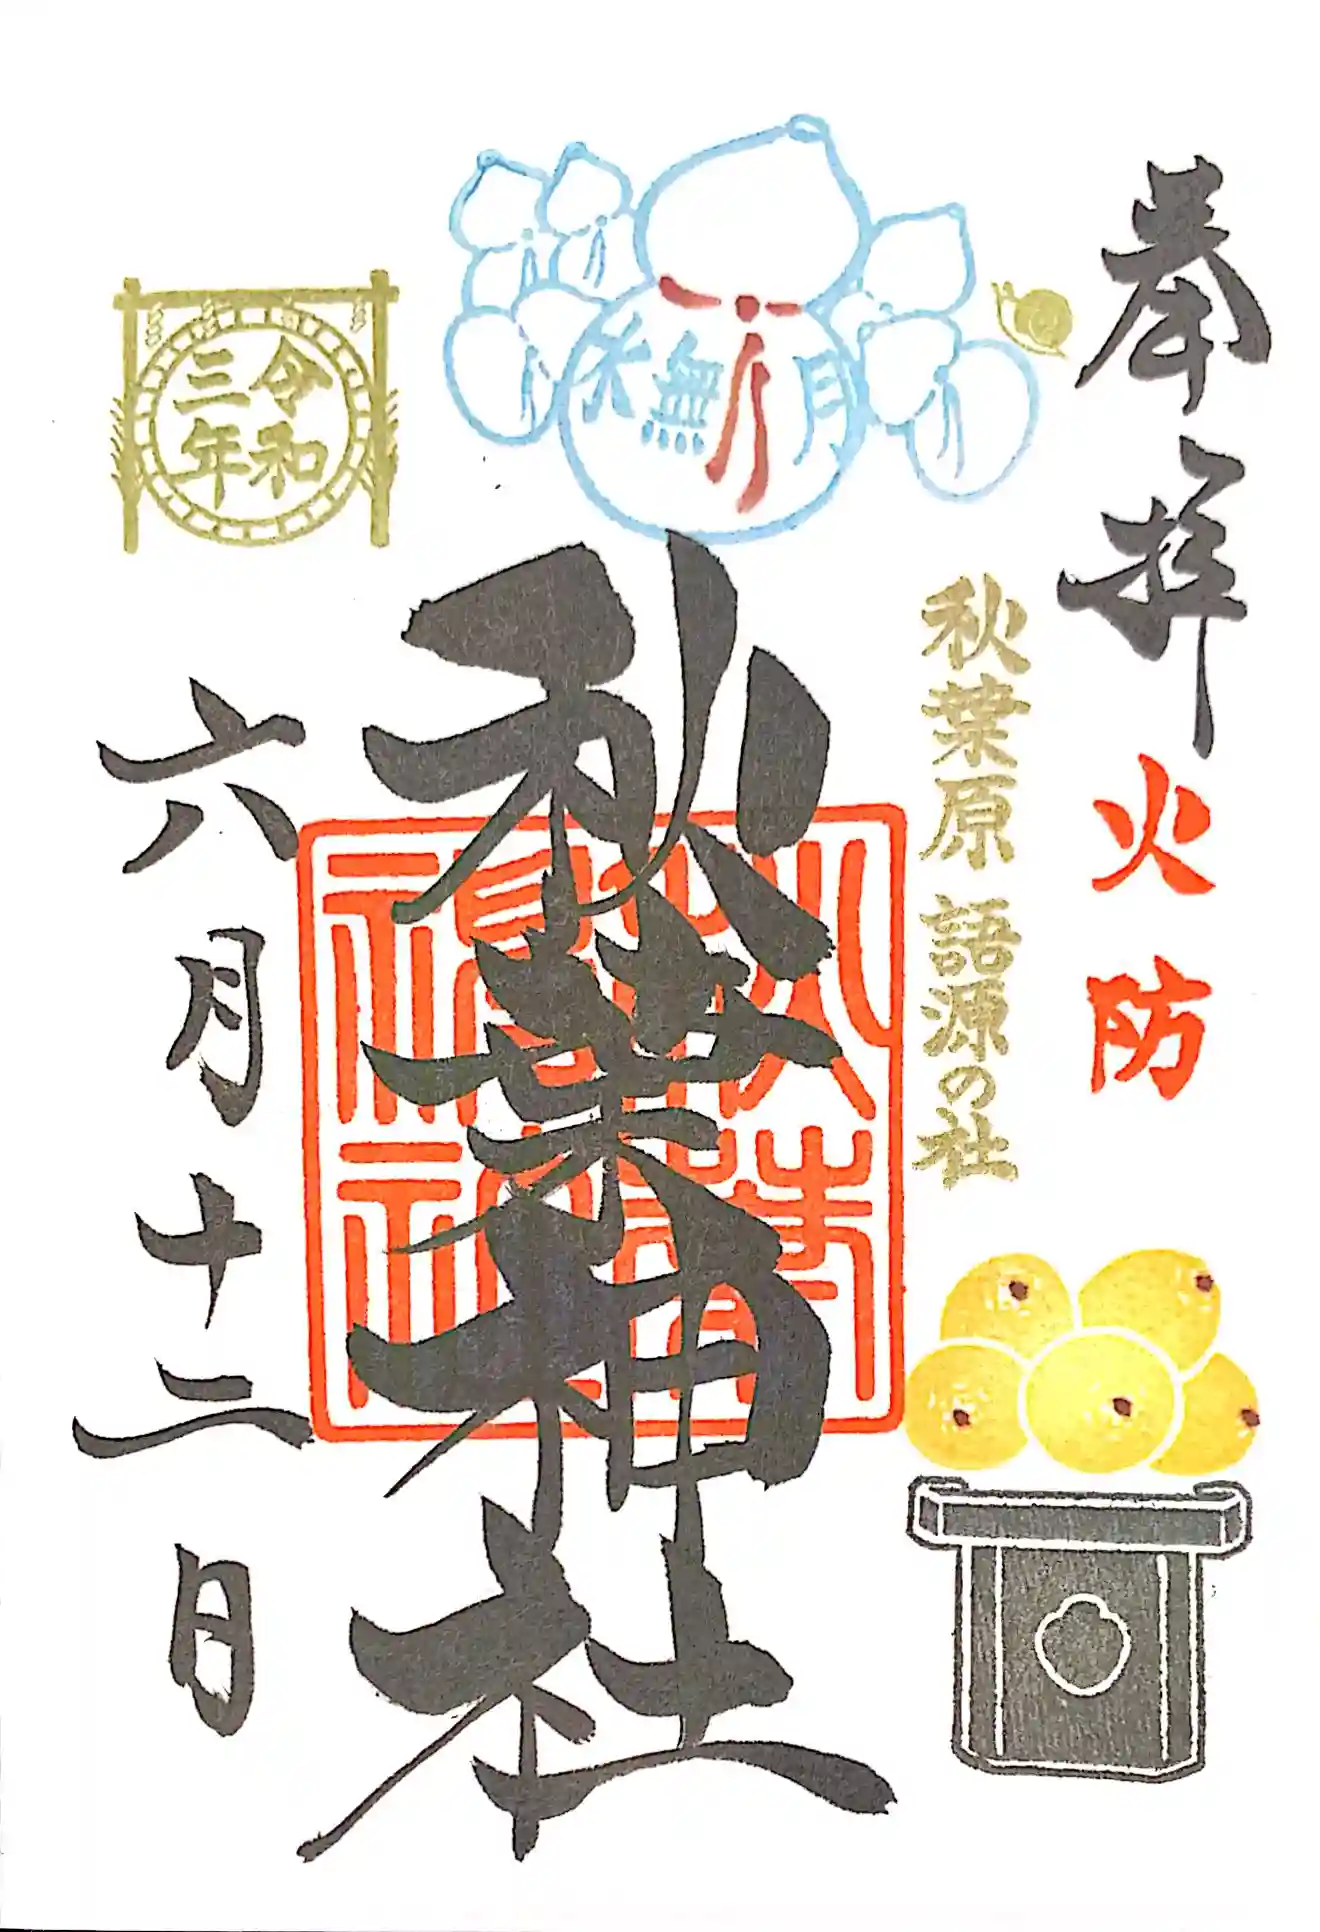 奉拝
火防
秋葉原 語源の社
水無月
秋葉神社
令和
三年
六月十二日